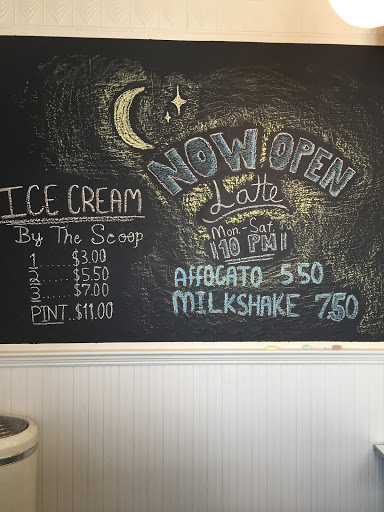 NOW OPEN
Latte
Mon-Sat.
10 PM
ICE CREAM
By The Scoop
1......$3.00
2......$5.50
3......$7.00
PINT..$11.00
AFFOGATO 5.50
MILKSHAKE 7.50